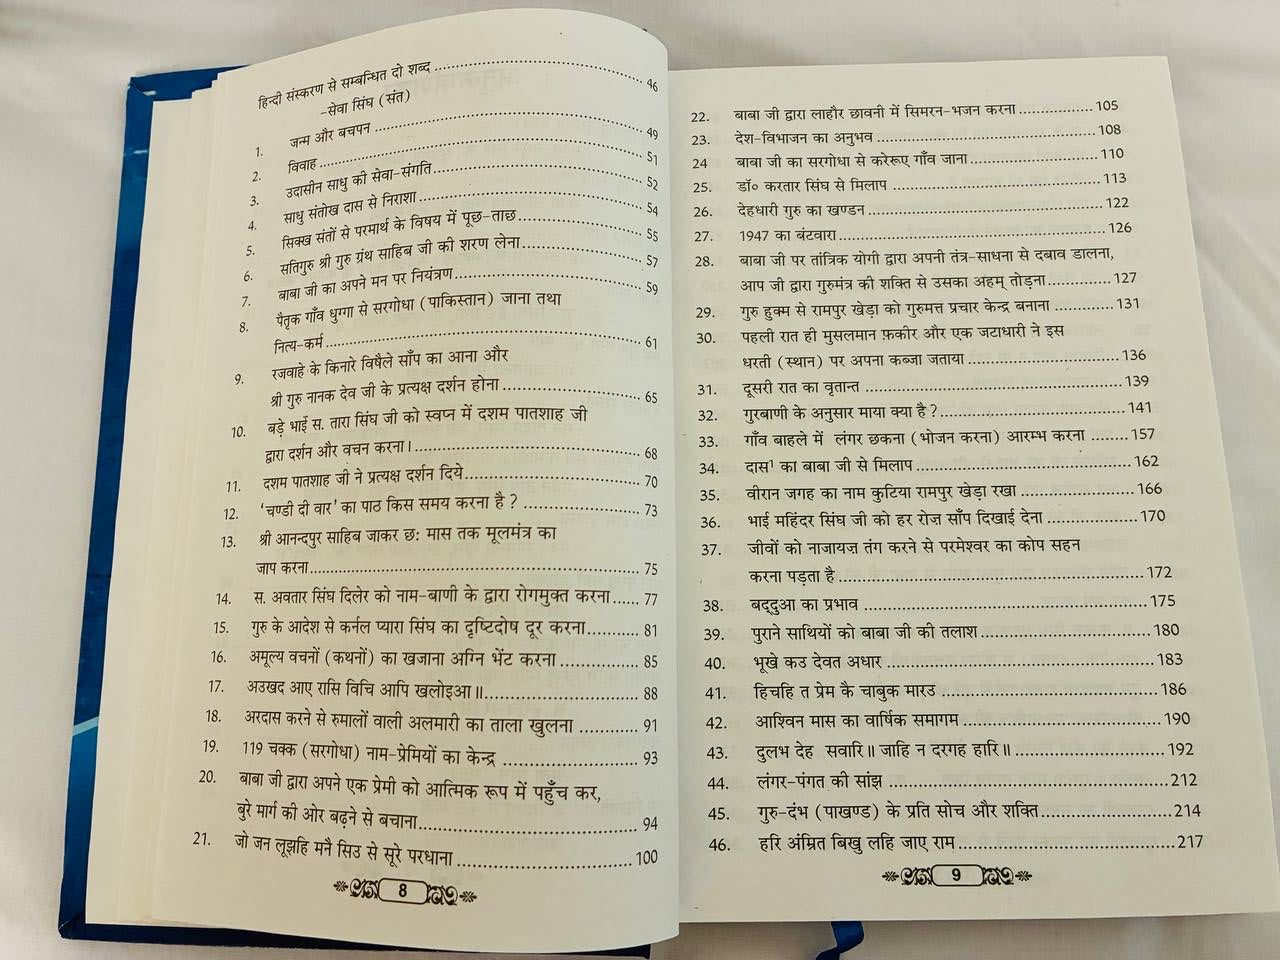 हिन्दी संस्करण से सम्बन्धित दो शब्द ........ 46
-सेवा सिंघ (संत)
1. जन्म और बचपन ........ 49
2. विवाह ........ 51
3. उदासीन साधु की सेवा-संगति ........ 52
4. साधु संतोख दास से निराशा ........ 54
5. सिक्ख संतों से परमार्थ के विषय में पूछ-ताछ ........ 55
6. सतिगुरु श्री गुरु ग्रंथ साहिब जी की शरण लेना ........ 57
7. बाबा जी का अपने मन पर नियंत्रण ........ 59
8. पैतृक गाँव धुग्गा से सरगोधा (पाकिस्तान) जाना तथा
नित्य-कर्म ........ 61
9. रजवाहे के किनारे विषैले साँप का आना और
श्री गुरु नानक देव जी के प्रत्यक्ष दर्शन होना ........ 65
10. बड़े भाई स. तारा सिंघ जी को स्वप्न में दशम पातशाह जी
द्वारा दर्शन और वचन करना। ........ 68
11. दशम पातशाह जी ने प्रत्यक्ष दर्शन दिये ........ 70
12. 'चण्डी दी वार' का पाठ किस समय करना है ? ........ 73
13. श्री आनन्दपुर साहिब जाकर छः मास तक मूलमंत्र का
जाप करना ........ 75
14. स. अवतार सिंघ दिलेर को नाम-बाणी के द्वारा रोगमुक्त करना ...... 77
15. गुरु के आदेश से कर्नल प्यारा सिंघ का दृष्टिदोष दूर करना ........ 81
16. अमूल्य वचनों (कथनों) का खजाना अग्नि भेंट करना ........ 85
17. अउखद आए रासि विचि आपि खलोइआ॥ ........ 88
18. अरदास करने से रुमालों वाली अलमारी का ताला खुलना ........ 91
19. 119 चक्क (सरगोधा) नाम-प्रेमियों का केन्द्र ........ 93
20. बाबा जी द्वारा अपने एक प्रेमी को आत्मिक रूप में पहुँच कर,
बुरे मार्ग की ओर बढ़ने से बचाना ........ 94
21. जो जन लूझहि मनै सिउ से सूरे परधाना ........ 100
8
22. बाबा जी द्वारा लाहौर छावनी में सिमरन-भजन करना ........ 105
23. देश-विभाजन का अनुभव ........ 108
24 बाबा जी का सरगोधा से करेरूए गाँव जाना ........ 110
25. डॉ० करतार सिंघ से मिलाप ........ 113
26. देहधारी गुरु का खण्डन ........ 122
27. 1947 का बंटवारा ........ 126
28. बाबा जी पर तांत्रिक योगी द्वारा अपनी तंत्र-साधना से दबाव डालना,
आप जी द्वारा गुरुमंत्र की शक्ति से उसका अहम् तोड़ना ........ 127
29. गुरु हुक्म से रामपुर खेड़ा को गुरुमत्त प्रचार केन्द्र बनाना ........ 131
30. पहली रात ही मुसलमान फ़कीर और एक जटाधारी ने इस
धरती (स्थान) पर अपना कब्जा जताया ........ 136
31. दूसरी रात का वृतान्त ........ 139
32. गुरबाणी के अनुसार माया क्या है ? ........ 141
33. गाँव बाहले में लंगर छकना (भोजन करना) आरम्भ करना ........ 157
34. दास¹ का बाबा जी से मिलाप ........ 162
35. वीरान जगह का नाम कुटिया रामपुर खेड़ा रखा ........ 166
36. भाई महिंदर सिंघ जी को हर रोज़ साँप दिखाई देना ........ 170
37. जीवों को नाजायज़ तंग करने से परमेश्वर का कोप सहन
करना पड़ता है ........ 172
38. बद्दुआ का प्रभाव ........ 175
39. पुराने साथियों को बाबा जी की तलाश ........ 180
40. भूखे कउ देवत अधार ........ 183
41. हिचहि त प्रेम कै चाबुक मारउ ........ 186
42. आश्विन मास का वार्षिक समागम ........ 190
43. दुलभ देह सवारि॥ जाहि न दरगह हारि॥ ........ 192
44. लंगर-पंगत की सांझ ........ 212
45. गुरु-दंभ (पाखण्ड) के प्रति सोच और शक्ति ........ 214
46. हरि अंम्रित बिखु लहि जाए राम ........ 217
9